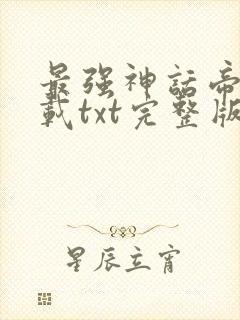 最强神話帝
載txt完整版
星辰立宵